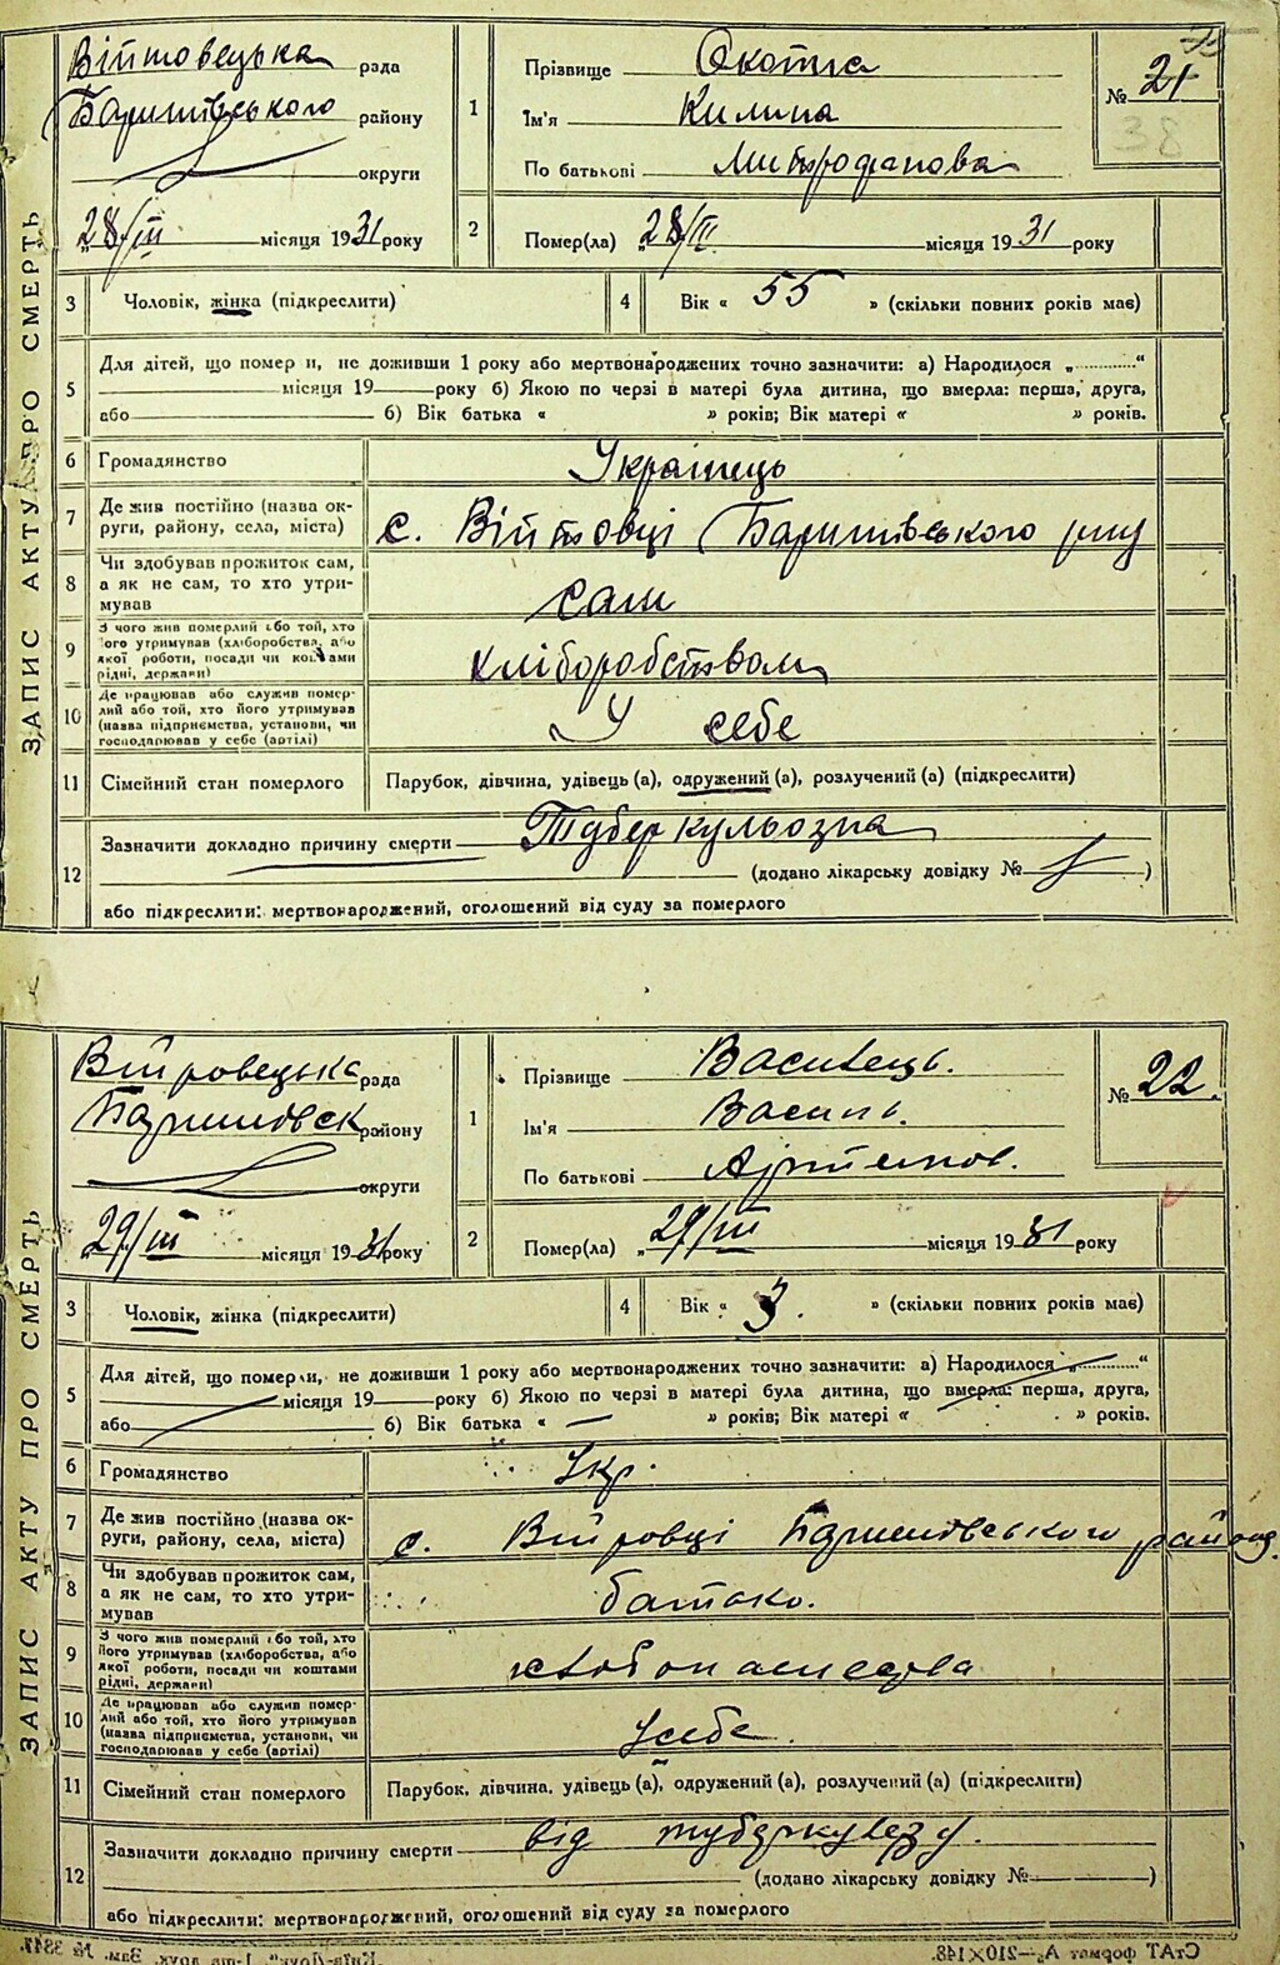 ЗАПИС АКТУ ПРО СМЕРТЬ
Війтовецька рада
Баришівського району
округи
„28/III місяця 1931 року
1
Прізвище Охотна
Ім'я Килина
По батькові Митрофанова
№ 21
38
2
Помер(ла) „28/III місяця 1931 року
3 Чоловік, жінка (підкреслити)
4 Вік « 55 » (скільки повних років має)
5 Для дітей, що помер и, не доживши 1 року або мертвонароджених точно зазначити: а) Народилося „..........“
місяця 19 року б) Якою по черзі в матері була дитина, що вмерла: перша, друга,
або б) Вік батька « » років; Вік матері « » років.
6 Громадянство Українець
7 Де жив постійно (назва ок-
руги, району, села, міста) с. Війтовці Баришівського р-ну
8 Чи здобував прожиток сам,
а як не сам, то хто утри-
мував сам
9 З чого жив померлий або той, хто
його утримував (хліборобства, або
якої роботи, посади чи коштами
рідні, держави) хліборобством
10 Де працював або служив помер-
лий або той, хто його утримував
(назва підприємства, установи, чи
господарював у себе (артілі) У себе
11 Сімейний стан померлого Парубок, дівчина, удівець (а), одружений (а), розлучений (а) (підкреслити)
12 Зазначити докладно причину смерти Туберкульозна
(додано лікарську довідку № )
або підкреслити: мертвонароджений, оголошений від суду за померлого
ЗАПИС АКТУ ПРО СМЕРТЬ
рада
району
округи
„29/III місяця 1931 року
1
Прізвище Василець.
Ім'я Василь.
По батькові Артемов.
№ 22.
2
Помер(ла) „29/III місяця 1931 року
3 Чоловік, жінка (підкреслити)
4 Вік « 3. » (скільки повних років має)
5 Для дітей, що померли, не доживши 1 року або мертвонароджених точно зазначити: а) Народилося „..........“
місяця 19 року б) Якою по черзі в матері була дитина, що вмерла: перша, друга,
або б) Вік батька « — » років; Вік матері « » років.
6 Громадянство Укр.
7 Де жив постійно (назва ок-
руги, району, села, міста) с. району.
8 Чи здобував прожиток сам,
а як не сам, то хто утри-
мував батько.
9 З чого жив померлий або той, хто
його утримував (хліборобства, або
якої роботи, посади чи коштами
рідні, держави)
10 Де працював або служив помер-
лий або той, хто його утримував
(назва підприємства, установи, чи
господарював у себе (артілі) У себе.
11 Сімейний стан померлого Парубок, дівчина, удівець (а), одружений (а), розлучений (а) (підкреслити)
12 Зазначити докладно причину смерти від туберкулезу.
(додано лікарську довідку № )
або підкреслити: мертвонароджений, оголошений від суду за померлого
„Київ-Друк“, 1-ша друк. Зам. № 3847.
СтАТ формат А₅—210×148.